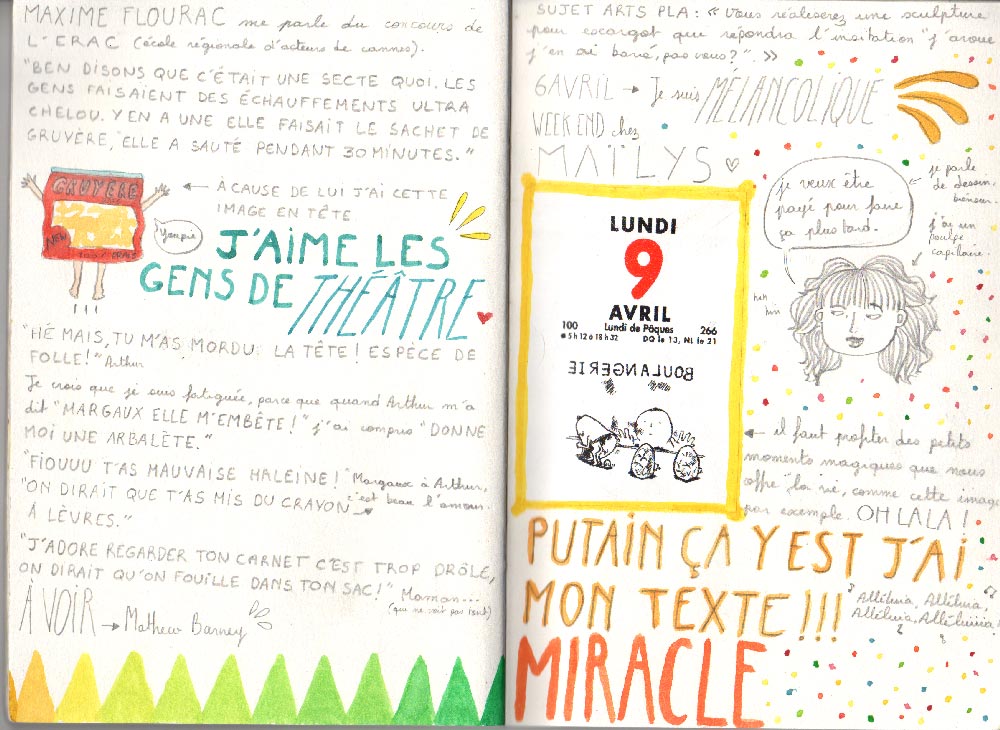 MAXIME FLOURAC me parle du concours de
L'ERAC (école régionale d'acteurs de cannes).
"BEN DISONS QUE C'ÉTAIT UNE SECTE QUOI. LES
GENS FAISAIENT DES ÉCHAUFFEMENTS ULTRA
CHELOU. Y EN A UNE ELLE FAISAIT LE SACHET DE
GRUYÈRE, ELLE A SAUTÉ PENDANT 30 MINUTES."
GRUYÈRE
NEW
Youpie
← À CAUSE DE LUI J'AI CETTE
IMAGE EN TÊTE
J'AIME LES
GENS DE THÉÂTRE
"HÉ MAIS, TU M'AS MORDU LA TÊTE ! ESPÈCE DE
FOLLE !" Arthur
Je crois que je suis fatiguée, parce que quand Arthur m'a
dit "MARGAUX ELLE M'EMBÊTE !" j'ai compris "DONNE
MOI UNE ARBALÈTE."
"FIOUUU T'AS MAUVAISE HALEINE !" Margaux à Arthur,
"ON DIRAIT QUE T'AS MIS DU CRAYON c'est beau l'amour
À LÈVRES."
"J'ADORE REGARDER TON CARNET C'EST TROP DRÔLE,
ON DIRAIT QU'ON FOUILLE DANS TON SAC !" Maman...
(qui ne voit pas tout)
À VOIR → Mathew Barney
SUJET ARTS PLA : « Vous réaliserez une sculpture
pour escargot que répondra l'incitation "j'avoue
j'en ai bavé, pas vous ?". »
6 AVRIL → Je suis MÉLANCOLIQUE
WEEK END chez
MAÏLYS ♡
LUNDI
9
AVRIL
100 Lundi de Pâques 266
● 5 h 12 à 18 h 32 DQ le 13, NL le 21
BOULANGERIE
je veux être
payé pour faire
ça plus tard.
je parle
de dessin,
j'ai un
poulpe
capillaire
hin
hin
← il faut profiter des petits
moments magiques que nous
offre la vie, comme cette image
par exemple. OH LALA !
PUTAIN ÇA Y EST J'AI
MON TEXTE !!!
Alléluia, Alléluia,
Alléluia, Alléluiiiia !
MIRACLE